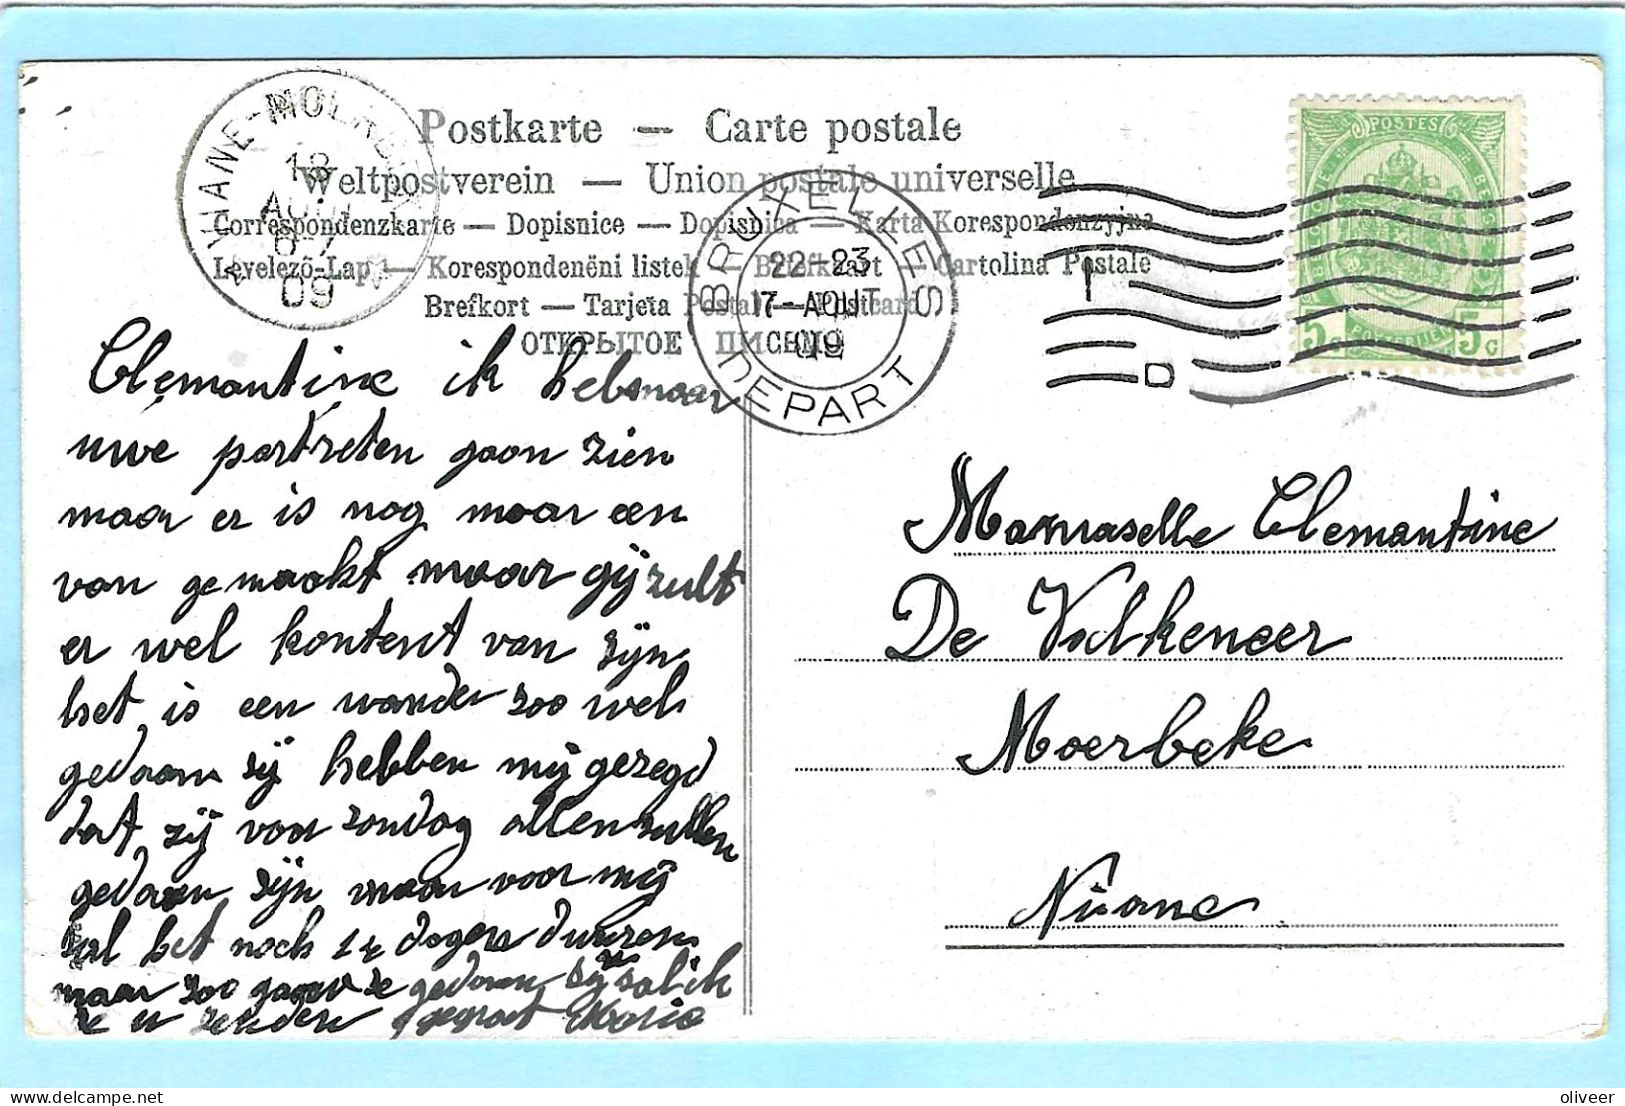 Postkarte — Carte postale
Weltpostverein — Union postale universelle
Correspondenzkarte — Dopisnice — Dopisnica — Karta Korespondenzyjna
Levelező-Lap — Korespondenčni listek — Briefkaart — Cartolina Postale
Brefkort — Tarjeta Postal — Postcard
ОТКРЫТОЕ ПИСЬМО
NINANE-MOERBEKE
18
AOUT
6-7
09
BRUXELLES
22-23
17-AOUT
09
DEPART
POSTES
BELGIQUE
BELGIE
5c POSTERIJEN 5c
Clemantine ik heb maar
uwe portreten gaan zien
maar er is nog maar een
van gemaakt maar gij zult
er wel kontent van zijn
het is een wonder zoo wel
gedaan zij hebben mij gezegd
dat zij voor zondag allen zullen
gedaan zijn maar voor mij
zal het noch 14 dagen duuren
maar zoo gauw ze gedaan zijn zal ik
ze u zenden gegroet Maria
Mamaselle Clemantine
De Valkeneer
Moerbeke
Ninane
oliveer